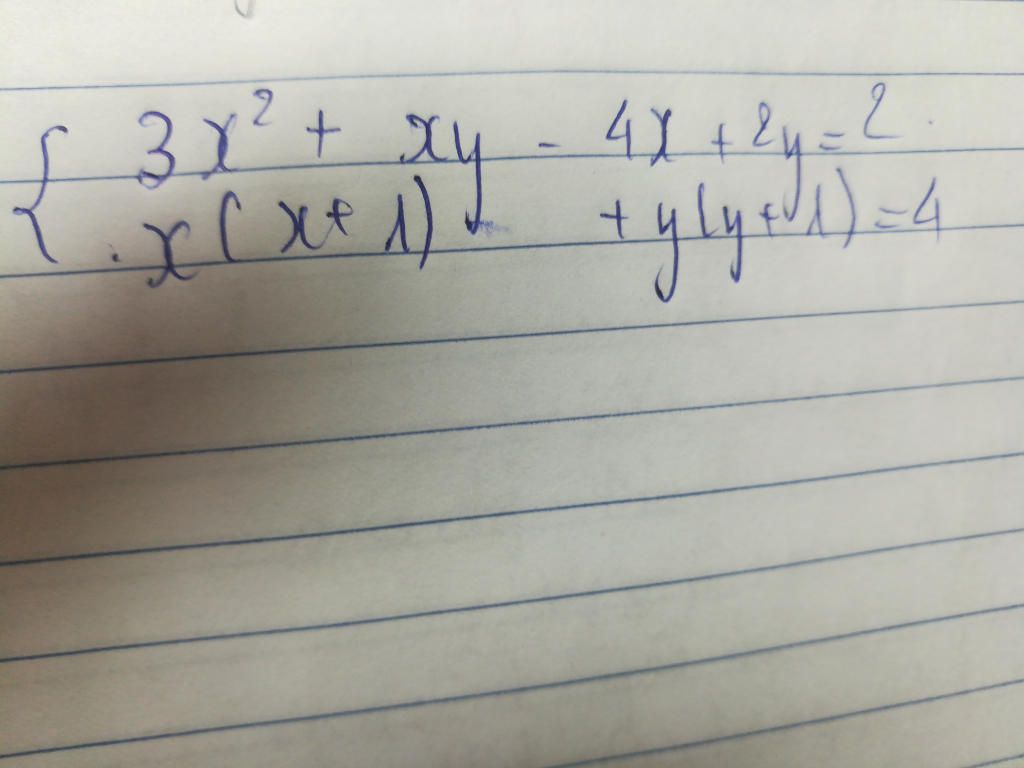 { 3x² + xy - 4x + 2y = 2
x(x+1) + y(y+1) = 4